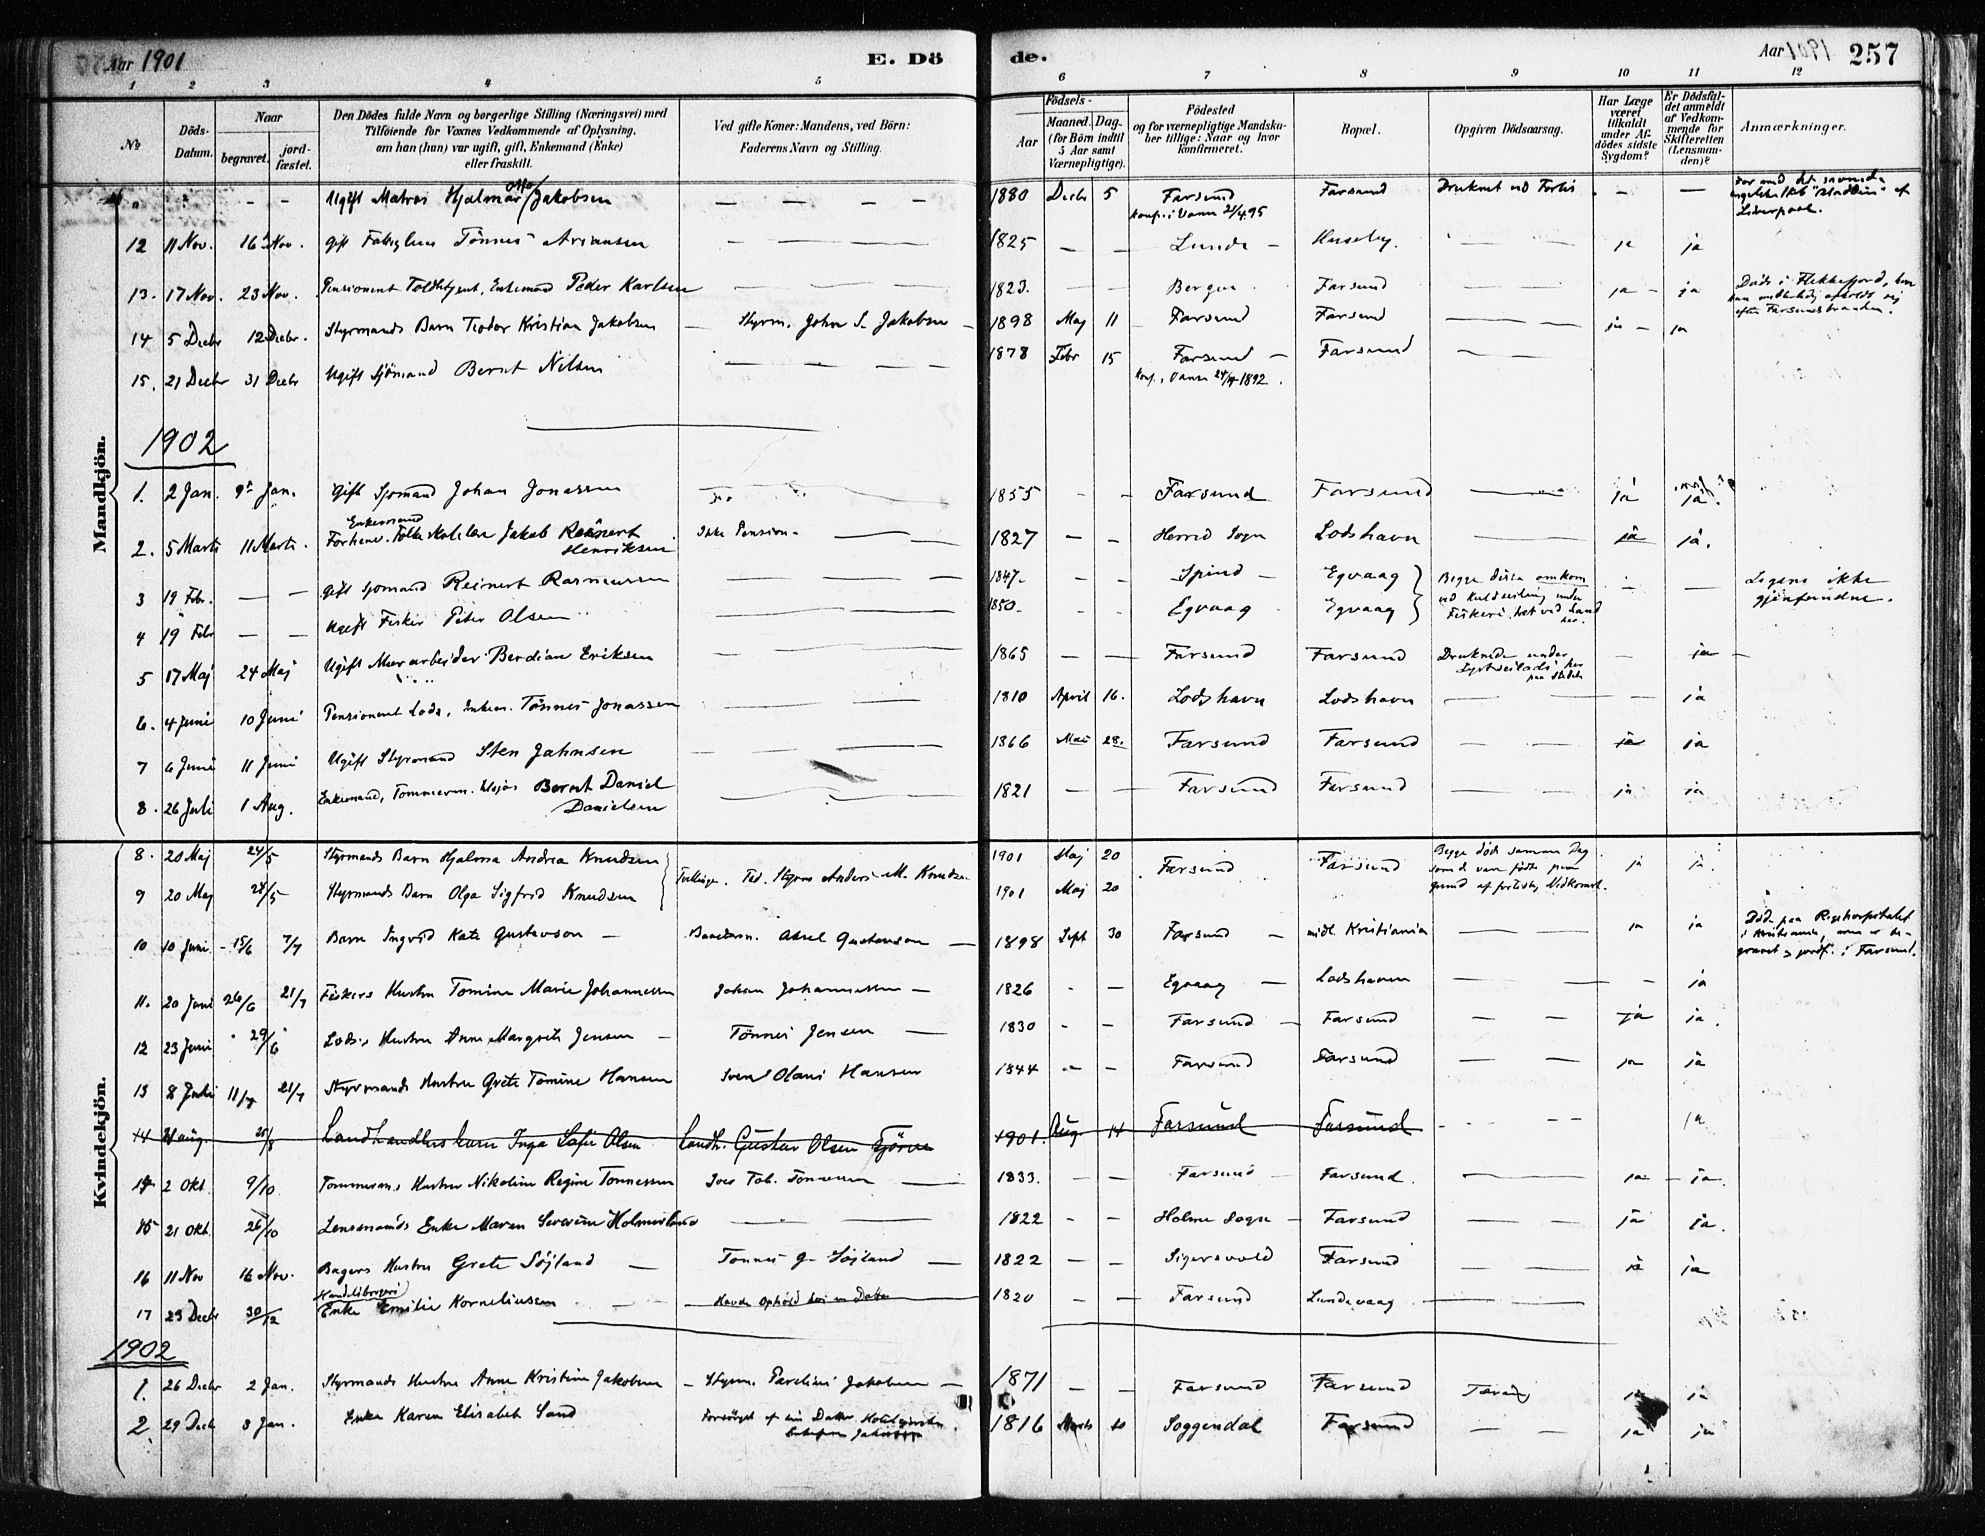 Aar 1901 E. Dö
1 2 3 4 5
№ Döds-Datum. Naar begravet. jord-fæstet. Den Dödes fulde Navn og borgerlige Stilling (Næringsvei) med Tilföiende for Voxnes Vedkommende af Oplysning, om han (hun) var ugift, gift, Enkemand (Enke) eller fraskilt. Ved gifte Koner: Mandens, ved Börn: Faderens Navn og Stilling.
de. Aar 1901 257
6 7 8 9 10 11 12
Födsels- Aar Maaned. Dag. (for Börn indtil 5 Aar samt Værnepligtige). Födested og for værnepligtige Mandskaber tillige: Naar og hvor konfirmeret. Bopæl. Opgiven Dödsaarsag. Har Læge været tilkaldt under Afdödes sidste Sygdom? Er Dödsfaldet anmeldt af Vedkommende for Skifteretten (Lensmanden)? Anmærkninger.
Mandkjön.
Ugift Matros Hjalmar Otto Jakobsen — — — — 1880 Decbr 5 Farsund Konf. i Vanse 21/4 95 Farsund Druknet ved Forlis — — Liverpool.
12 11 Nov. 16 Nov. gift Tönnes Ariansen — — — — 1825 — — Lunde Huseby. — — ja ja
13. 17 Nov. 23 Nov. Pensioneret Toldbetjent, Enkemand Peder Karlsen — — — 1823. — — Bergen Farsund — — ja ja Döde i Flekkefjord,
14 5 Decbr 12 Decbr. Styrmands Barn Teodor Kristian Jakobsen — Styrm. John S. Jakobsen — 1898 Maj 11 Farsund Farsund — — ja ja
15. 21 Decbr 31 Decbr Ugift Sjömand Bernt Nilsen — — — 1878 Febr 15 Farsund — Konf. i Vanse 24/4 1892. Farsund — —
1902
1. 2 Jan. 9 Jan. Gift Sjömand Johan Jonassen 1855 — — Farsund Farsund — ja ja
2. 5 Marts 11 Marts. Enkemand Forhenv. Folkeskolelærer Jakob Reinert Henriksen Ikke Pension. — — 1827 — — Herred Sogn Lodshavn — — ja ja.
3 19 Febr. — — gift Sjömand Reinert Rasmussen — — — 1847. — — Spind — Egvaag Begge disse omkom ved Kuldseiling under Fiskeri, tæt ved Land her. — — Ligene ikke gjenfundne.
4 19 Febr — — Ugift Fisker Peter Olsen — — — 1850. — — Egvaag Egvaag
5 17 Maj 24 Maj Ugift Murarbeider Berdian Eriksen — — — 1865 — — Farsund Farsund Druknede under Lystseilads her paa Stedet — ja —
6. 4 Juni 10 Juni Pensioneret Lods, Enkem. Tönnes Jonassen — — — 1810 April 16. Lodshavn Lodshavn — — — ja
7 6 Juni 11 Juni Ugift Styrmand Sten Jahnsen — — — 1866 Mai 28. Farsund Farsund — — ja ja
8. 26 Juli 1 Aug. Enkemand, Tömmerm. Bernt Daniel Danielsen — — — 1821 — — Farsund Farsund — — ja ja
Kvindekjön.
8. 20 Maj 24/5 Styrmands Barn Hjalma Andrea Knudsen Tvillinger. Fad. Styrm Anders M. Knudsen 1901 Maj 20 Farsund Farsund Begge döde samme Dag som de vare födte paa grund af fortidlig Nedkomst. ja ja
9 20 Maj 24/5 Styrmands Barn Olga Sigfrid Knudsen 1901 Maj 20
10 10 Juni 15/6 7/7 Barn Ingvid Kate Gustavson — Axel Gustavson — 1898 Sept 30 Farsund — midl. Kristiania — ja ja Död paa Rigshospitalet i Kristiania, men er begravet og jordf. i Farsund.
11. 20 Juni 26/6 21/7 Fiskers Hustru Tomine Marie Johannessen Johan Johannessen — 1826 — — Egvaag — Lodshavn — — — ja
12 23 Juni 29/6 Lods's Hustru Anne Margrete Jensen — Tönnes Jensen — 1830 — — Farsund — Farsund — — ja ja.
13 8 Juli 11/7 21/7 Styrmands Hustru Grete Tomine Hansen Sven Olaus Hansen 1844 — — Farsund Farsund — — ja ja
14 21 aug. 25/8 Landhandlers barn Inga Sofie Olsen Landh. Gustav Olsen Fjörne 1901. Aug. 14 Farsund Farsund — — ja
14 2 Okt. 9/10 Tömmerm.s Hustru Nikoline Regine Tönnessen Tob. Tönnessen — 1833. — — Farsund — Farsund. — — ja — ja.
15 21 Okt. 26/10 Lensmands Enke Maren Severine Holmesland — — — 1822 — — Holme Sogn — Farsund — — ja ja.
16 11 Nov 16 Nov. Bagers Hustru Grete Söjland — Tönnes G. Söjland — 1822 — — Sigersvold Farsund — — ja ja
17 23 Decbr 30/12 Enke Emilie Korneliussen — — Havde Ophold hos en Datter 1820 — — Farsund Lundevaag — —
1902
1. 26 Decbr 2 Jan. Styrmands Hustru Anne Kristine Jakobsen — Styrm. Parelius Jakobsen — 1871 — — Farsund Farsund Tæring ja ja
2. 29 Decb 3 Jan. Enke Karen Elisabet Sand Forsörget af sin Datter 1816 Marts 10 Soggendal Farsund — — ja ja